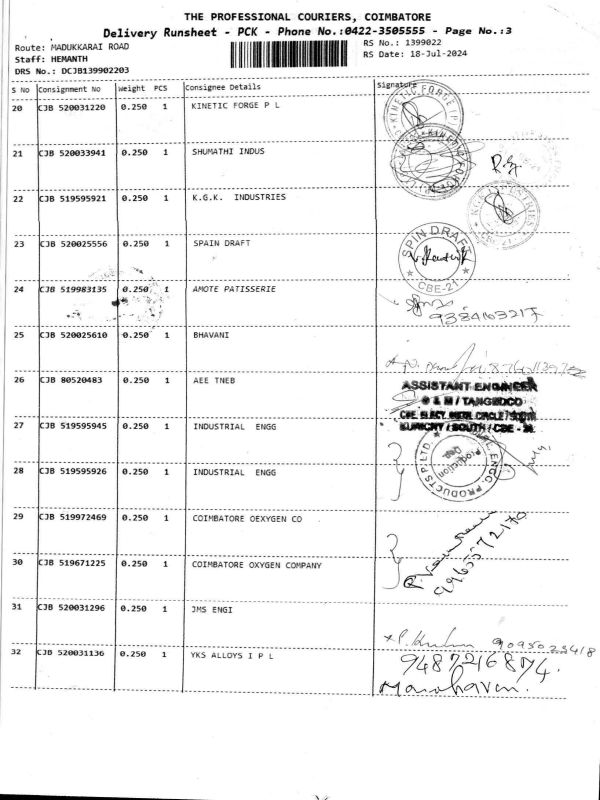 THE PROFESSIONAL COURIERS, COIMBATORE
Delivery Runsheet - PCK - Phone No.:0422-3505555 - Page No.:3
Route: MADUKKARAI ROAD
RS No.: 1399022
Staff: HEMANTH
RS Date: 18-Jul-2024
DRS No.: DCJB139902203
S No Consignment No Weight PCS Consignee Details Signature
20 CJB 520031220 0.250 1 KINETIC FORGE P L
KINETIC FORGE
21 CJB 520033941 0.250 1 SHUMATHI INDUS
KINETIC FORGE
22 CJB 519595921 0.250 1 K.G.K. INDUSTRIES
23 CJB 520025556 0.250 1 SPAIN DRAFT
SPIN DRAFT
CBE-21
24 CJB 519983135 0.250 1 AMOTE PATISSERIE
9384163217
25 CJB 520025610 0.250 1 BHAVANI
26 CJB 80520483 0.250 1 AEE TNEB
ASSISTANT ENGINEER
O & M / TANGEDCO
27 CJB 519595945 0.250 1 INDUSTRIAL ENGG
ENGG PRODUCTS P LTD.
Production
28 CJB 519595926 0.250 1 INDUSTRIAL ENGG
29 CJB 519972469 0.250 1 COIMBATORE OEXYGEN CO
30 CJB 519671225 0.250 1 COIMBATORE OXYGEN COMPANY
9965572170
31 CJB 520031296 0.250 1 JMS ENGI
32 CJB 520031136 0.250 1 YKS ALLOYS I P L
9487216874